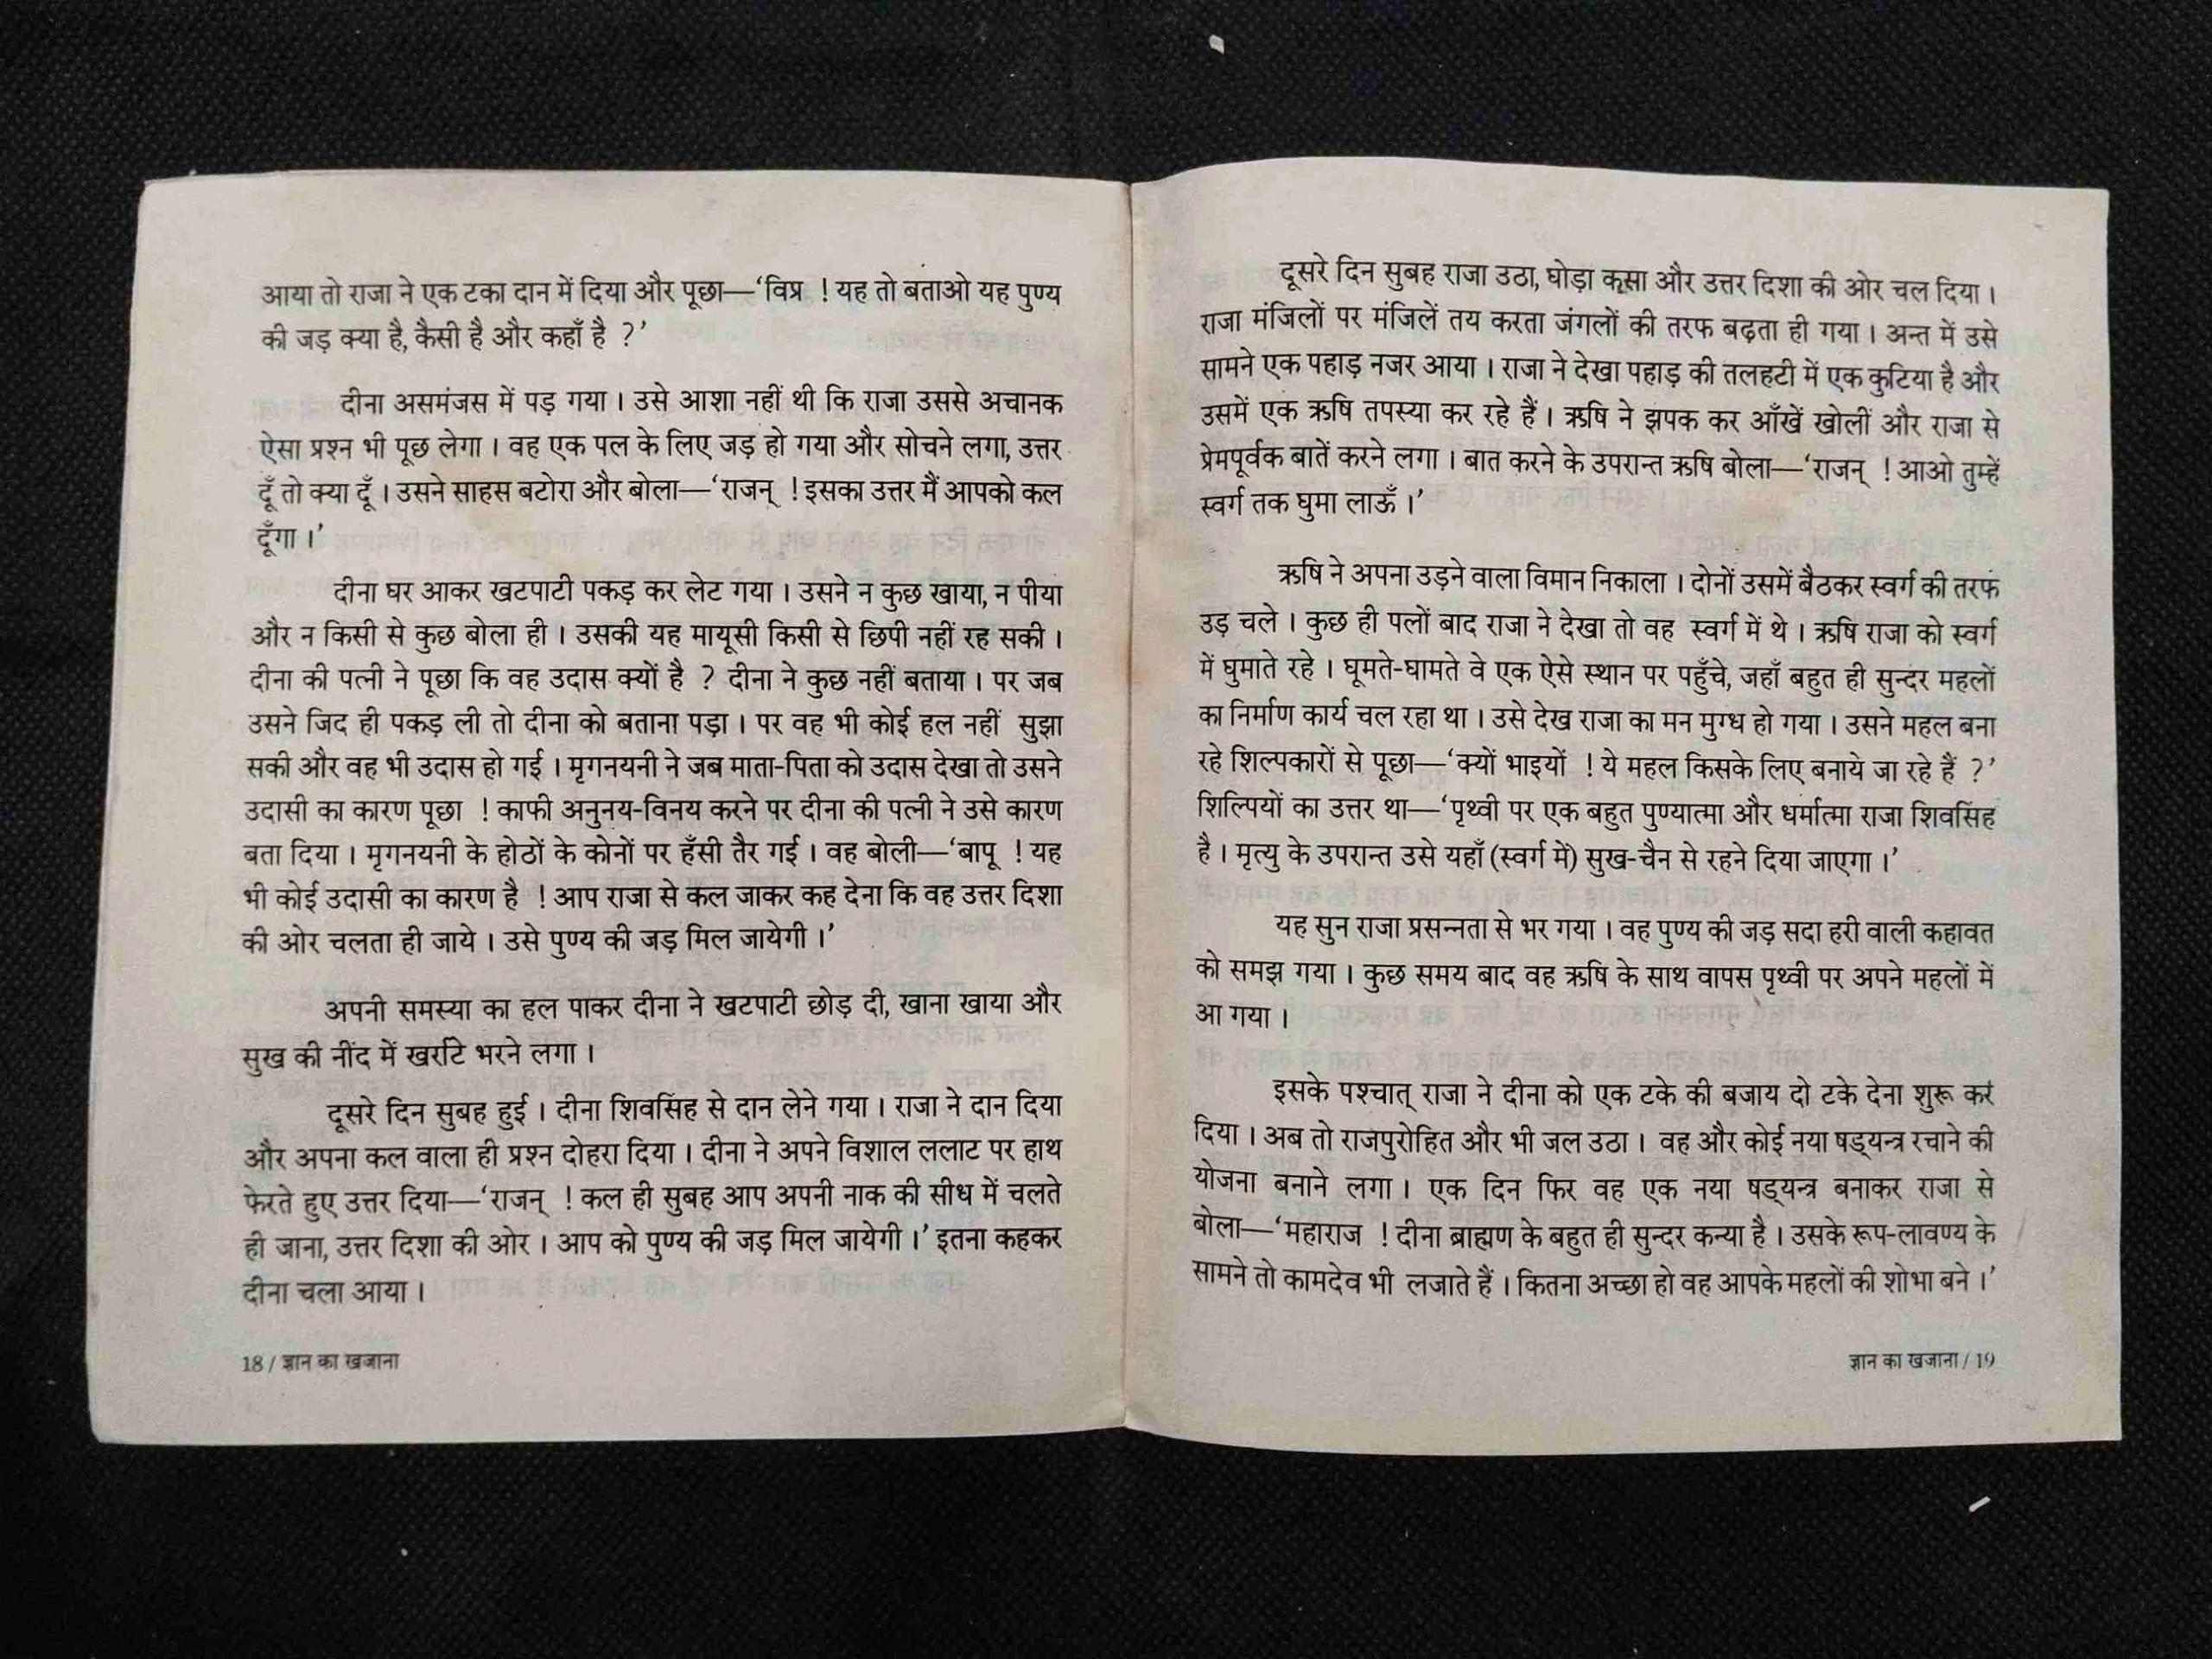 आया तो राजा ने एक टका दान में दिया और पूछा—‘विप्र ! यह तो बताओ यह पुण्य
की जड़ क्या है, कैसी है और कहाँ है ?’
दीना असमंजस में पड़ गया । उसे आशा नहीं थी कि राजा उससे अचानक
ऐसा प्रश्न भी पूछ लेगा । वह एक पल के लिए जड़ हो गया और सोचने लगा, उत्तर
दूँ तो क्या दूँ । उसने साहस बटोरा और बोला—‘राजन् ! इसका उत्तर मैं आपको कल
दूँगा ।’
दीना घर आकर खटपाटी पकड़ कर लेट गया । उसने न कुछ खाया, न पीया
और न किसी से कुछ बोला ही । उसकी यह मायूसी किसी से छिपी नहीं रह सकी ।
दीना की पत्नी ने पूछा कि वह उदास क्यों है ? दीना ने कुछ नहीं बताया । पर जब
उसने जिद ही पकड़ ली तो दीना को बताना पड़ा । पर वह भी कोई हल नहीं सुझा
सकी और वह भी उदास हो गई । मृगनयनी ने जब माता-पिता को उदास देखा तो उसने
उदासी का कारण पूछा ! काफी अनुनय-विनय करने पर दीना की पत्नी ने उसे कारण
बता दिया । मृगनयनी के होठों के कोनों पर हँसी तैर गई । वह बोली—‘बापू ! यह
भी कोई उदासी का कारण है ! आप राजा से कल जाकर कह देना कि वह उत्तर दिशा
की ओर चलता ही जाये । उसे पुण्य की जड़ मिल जायेगी ।’
अपनी समस्या का हल पाकर दीना ने खटपाटी छोड़ दी, खाना खाया और
सुख की नींद में खर्राटे भरने लगा ।
दूसरे दिन सुबह हुई । दीना शिवसिंह से दान लेने गया । राजा ने दान दिया
और अपना कल वाला ही प्रश्न दोहरा दिया । दीना ने अपने विशाल ललाट पर हाथ
फेरते हुए उत्तर दिया—‘राजन् ! कल ही सुबह आप अपनी नाक की सीध में चलते
ही जाना, उत्तर दिशा की ओर । आप को पुण्य की जड़ मिल जायेगी ।’ इतना कहकर
दीना चला आया ।
18 / ज्ञान का खजाना
दूसरे दिन सुबह राजा उठा, घोड़ा कसा और उत्तर दिशा की ओर चल दिया ।
राजा मंजिलों पर मंजिलें तय करता जंगलों की तरफ बढ़ता ही गया । अन्त में उसे
सामने एक पहाड़ नजर आया । राजा ने देखा पहाड़ की तलहटी में एक कुटिया है और
उसमें एक ऋषि तपस्या कर रहे हैं । ऋषि ने झपक कर आँखें खोलीं और राजा से
प्रेमपूर्वक बातें करने लगा । बात करने के उपरान्त ऋषि बोला—‘राजन् ! आओ तुम्हें
स्वर्ग तक घुमा लाऊँ ।’
ऋषि ने अपना उड़ने वाला विमान निकाला । दोनों उसमें बैठकर स्वर्ग की तरफ
उड़ चले । कुछ ही पलों बाद राजा ने देखा तो वह स्वर्ग में थे । ऋषि राजा को स्वर्ग
में घुमाते रहे । घूमते-घामते वे एक ऐसे स्थान पर पहुँचे, जहाँ बहुत ही सुन्दर महलों
का निर्माण कार्य चल रहा था । उसे देख राजा का मन मुग्ध हो गया । उसने महल बना
रहे शिल्पकारों से पूछा—‘क्यों भाइयों ! ये महल किसके लिए बनाये जा रहे हैं ?’
शिल्पियों का उत्तर था—‘पृथ्वी पर एक बहुत पुण्यात्मा और धर्मात्मा राजा शिवसिंह
है । मृत्यु के उपरान्त उसे यहाँ (स्वर्ग में) सुख-चैन से रहने दिया जाएगा ।’
यह सुन राजा प्रसन्नता से भर गया । वह पुण्य की जड़ सदा हरी वाली कहावत
को समझ गया । कुछ समय बाद वह ऋषि के साथ वापस पृथ्वी पर अपने महलों में
आ गया ।
इसके पश्चात् राजा ने दीना को एक टके की बजाय दो टके देना शुरू कर
दिया । अब तो राजपुरोहित और भी जल उठा । वह और कोई नया षड्यन्त्र रचाने की
योजना बनाने लगा । एक दिन फिर वह एक नया षड्यन्त्र बनाकर राजा से
बोला—‘महाराज ! दीना ब्राह्मण के बहुत ही सुन्दर कन्या है । उसके रूप-लावण्य के
सामने तो कामदेव भी लजाते हैं । कितना अच्छा हो वह आपके महलों की शोभा बने ।’
ज्ञान का खजाना / 19